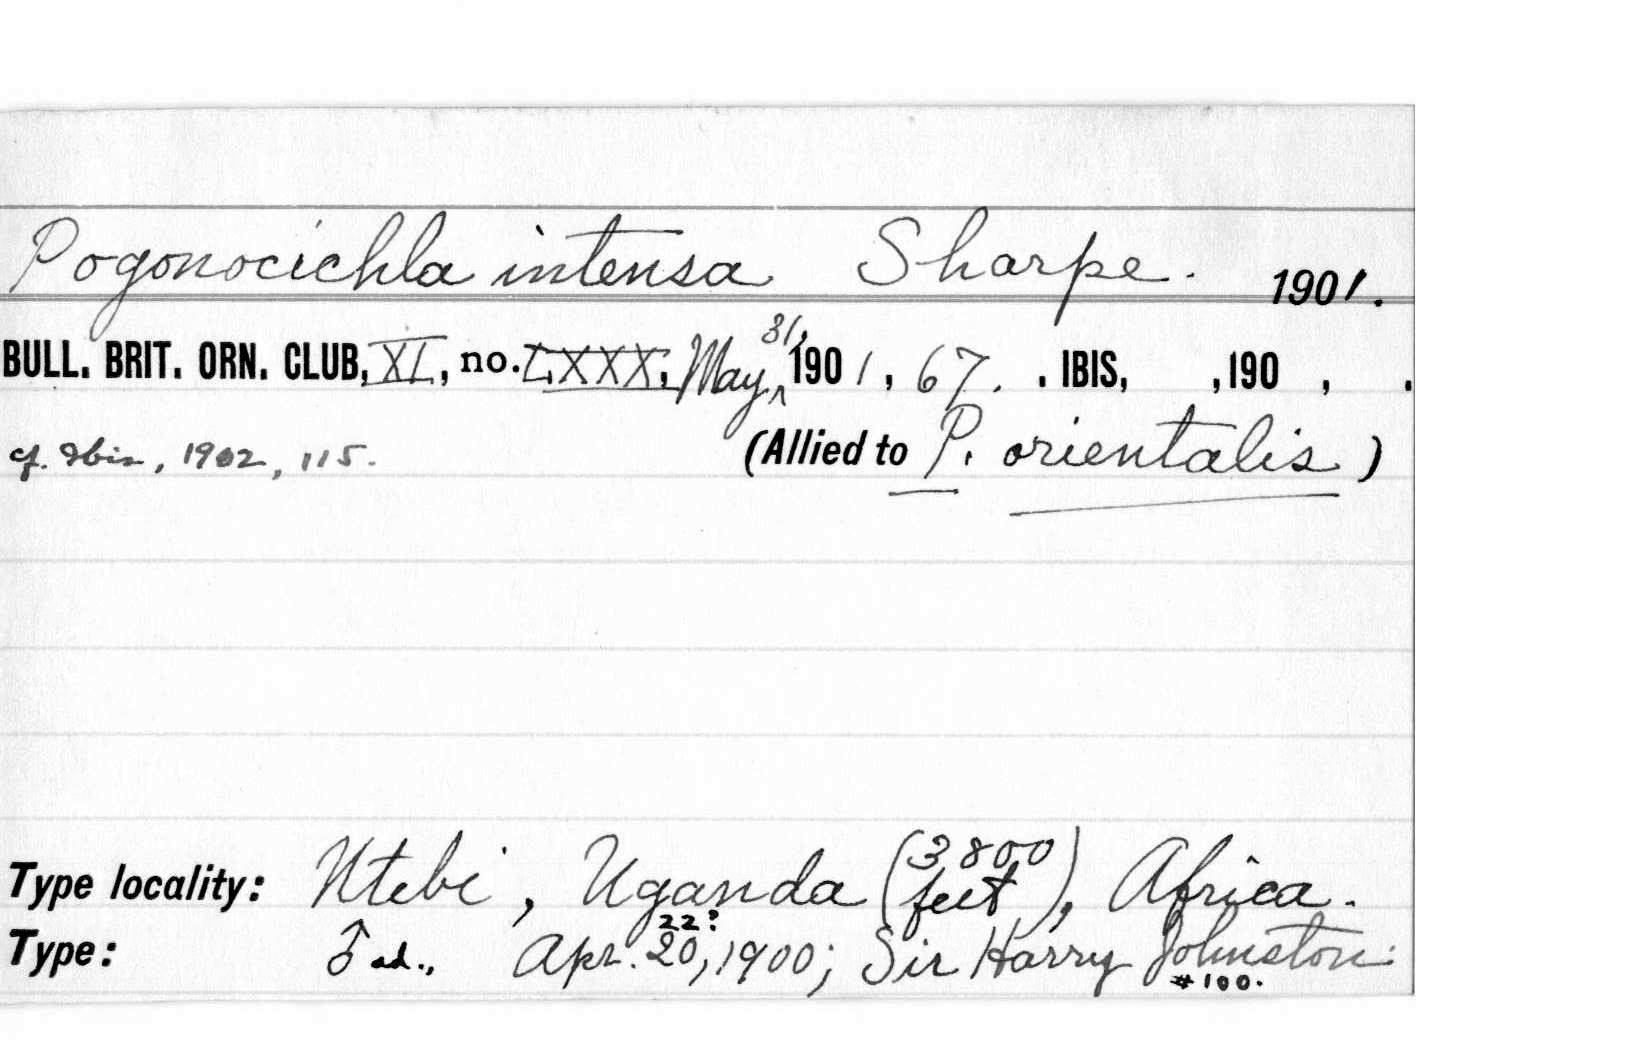 Pogonocichla intensa Sharpe. 1901.
BULL. BRIT. ORN. CLUB, XI, no. LXXX, May 31, 1901, 67. . IBIS, ,190 , .
cf. Ibis, 1902, 115. (Allied to P. orientalis)
Type locality: Ntebi, Uganda (3800 feet), Africa.
22?
Type: ♂ ad., Apr. 20, 1900; Sir Harry Johnston.
#100.